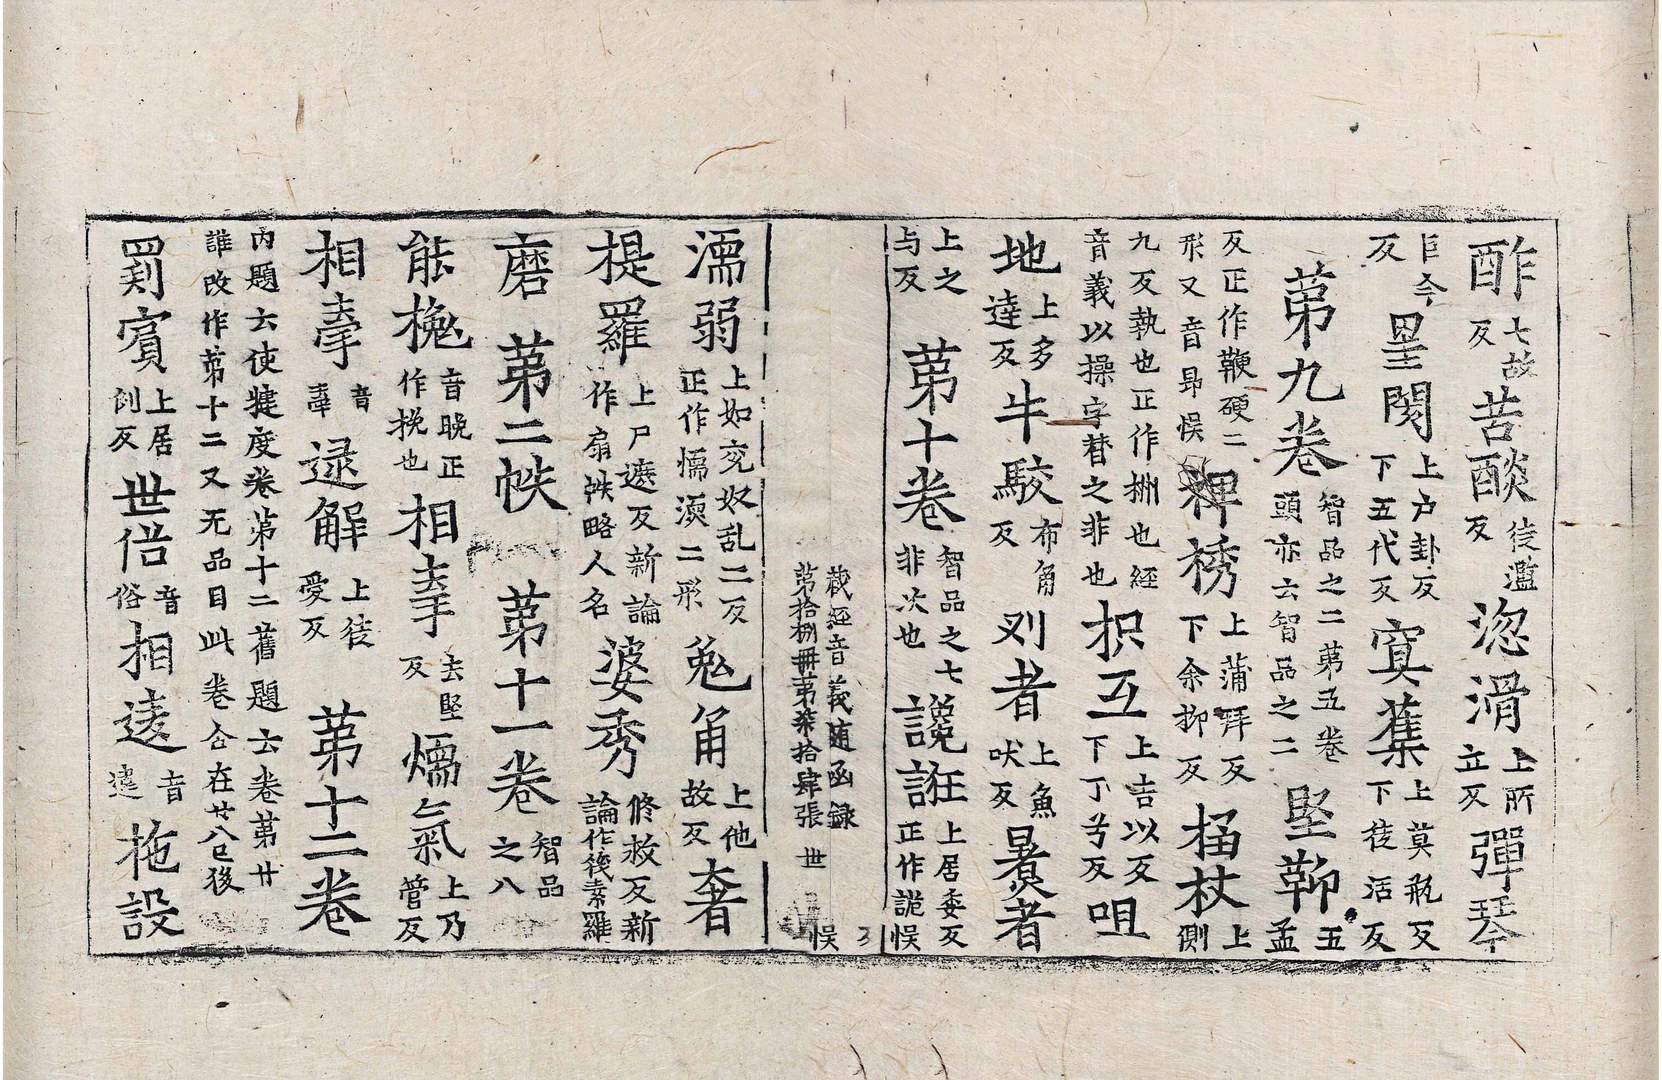 酢七故反苦醶徒濫反淴滑上所立反彈琴
巨今反罣閡上户卦反下五代反寞䕺上莫瓶反下徒活反
第九卷智品之二第五卷頭亦云智品之二堅鞕五孟
反正作鞭硬二形又音昂悮稗莠上蒲拜反下余抑反桰杖上側
九反執也正作㭼也經音義以操字替之非也枳互上吉以反下丁兮反咀
地上多達反牛駮布角反刈者上魚吠反㬥者
上之与反第十卷智品之七非次也讒誑上居委反正作詭悮
藏經音義随函録第拾捌冊第柒拾肆張世
濡弱上如兖奴乱二反正作懦渜二形兔角上他故反奢
提羅上尸遮反新論作扇帙略人名婆秀修救反新論作筏素羅
磨第二帙第十一卷智品之八
能㮯音晚正作挽也相㨗去堅反煗气氣上乃管反
相㨗音牽逯解上徒愛反第十二卷
内題云使揵度卷第十二舊題云卷第廿誰改作第十二又无品目此卷合在廿八已後
罽賓上居例反世俗音俗相遠音遠拖設